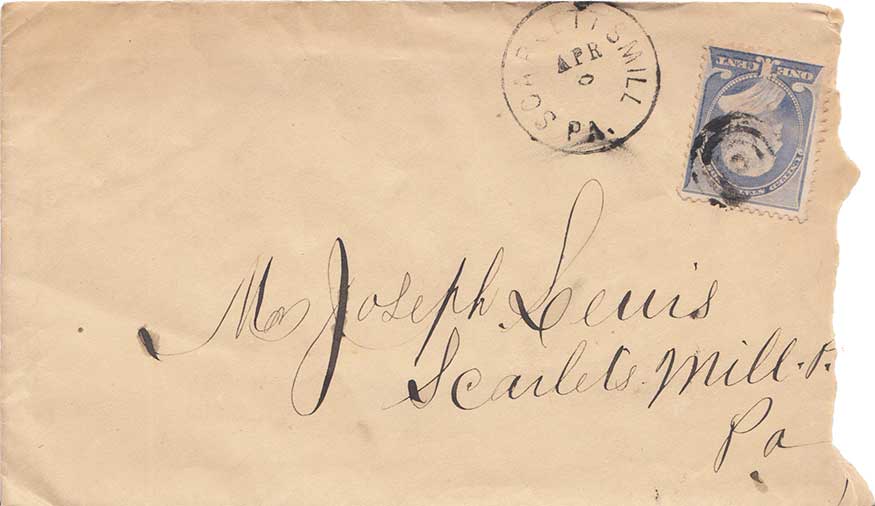 SCARLETTSMILL
APR
6
PA.
ONE CENT
UNITED STATES
Mr Joseph Lewis
Scarlets Mill. P.
Pa